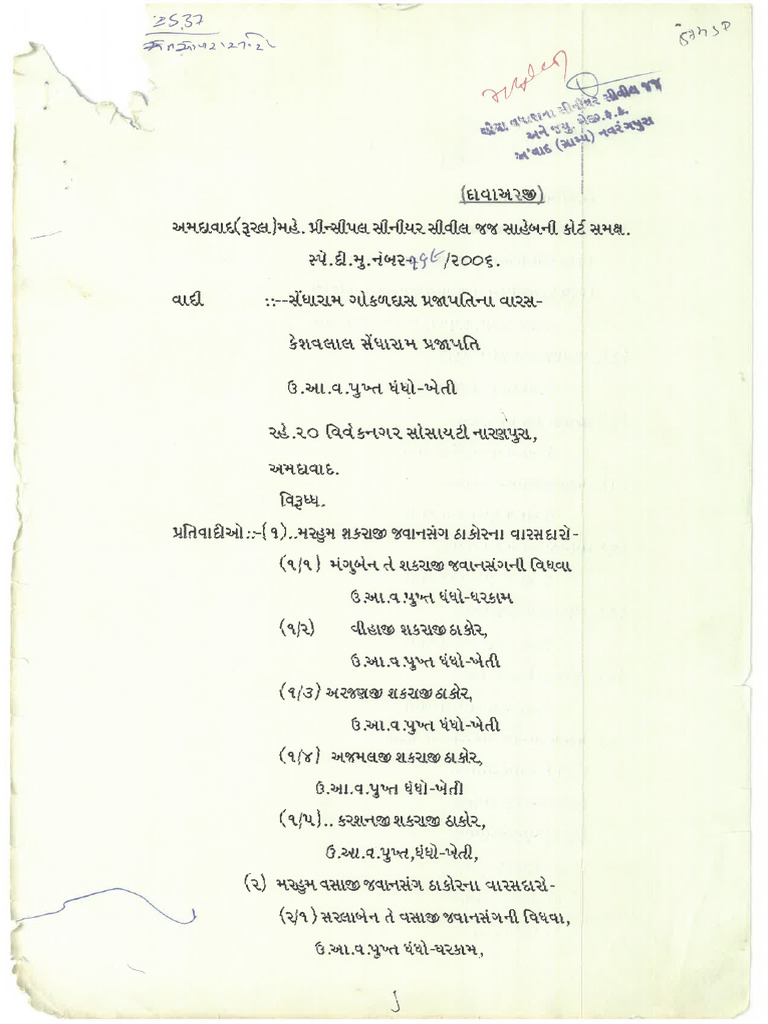 (દાવાઅરજી)
અમદાવાદ(રૂરલ)મહે. પ્રીન્સીપલ સીનીયર સીવીલ જજ સાહેબની કોર્ટ સમક્ષ.
સ્પે.દી.મુ.નંબર- /૨૦૦૬.
વાદી ::--સેંધારામ ગોકળદાસ પ્રજાપતિના વારસ-
કેશવલાલ સેંધારામ પ્રજાપતિ
ઉ.આ.વ.પુખ્ત ધંધો-ખેતી
રહે.૨૦ વિવેકનગર સોસાયટી નારણપુરા,
અમદાવાદ.
વિરૂધ્ધ.
પ્રતિવાદીઓ::-(૧)..મરહુમ શકરાજી જવાનસંગ ઠાકોરના વારસદારો-
(૧/૧) મંગુબેન તે શકરાજી જવાનસંગની વિધવા
ઉ.આ.વ.પુખ્ત ધંધો-ઘરકામ
(૧/૨) વીહાજી શકરાજી ઠાકોર,
ઉ.આ.વ.પુખ્ત ધંધો-ખેતી
(૧/૩) અરજણજી શકરાજી ઠાકોર,
ઉ.આ.વ.પુખ્ત ધંધો-ખેતી
(૧/૪) અજમલજી શકરાજી ઠાકોર,
ઉ.આ.વ.પુખ્ત ધંધો-ખેતી
(૧/૫).. કરશનજી શકરાજી ઠાકોર,
ઉ.આ.વ.પુખ્ત,ધંધો-ખેતી,
(૨) મરહુમ વસાજી જવાનસંગ ઠાકોરના વારસદારો-
(૨/૧) સરલાબેન તે વસાજી જવાનસંગની વિધવા,
ઉ.આ.વ.પુખ્ત ધંધો-ઘરકામ,